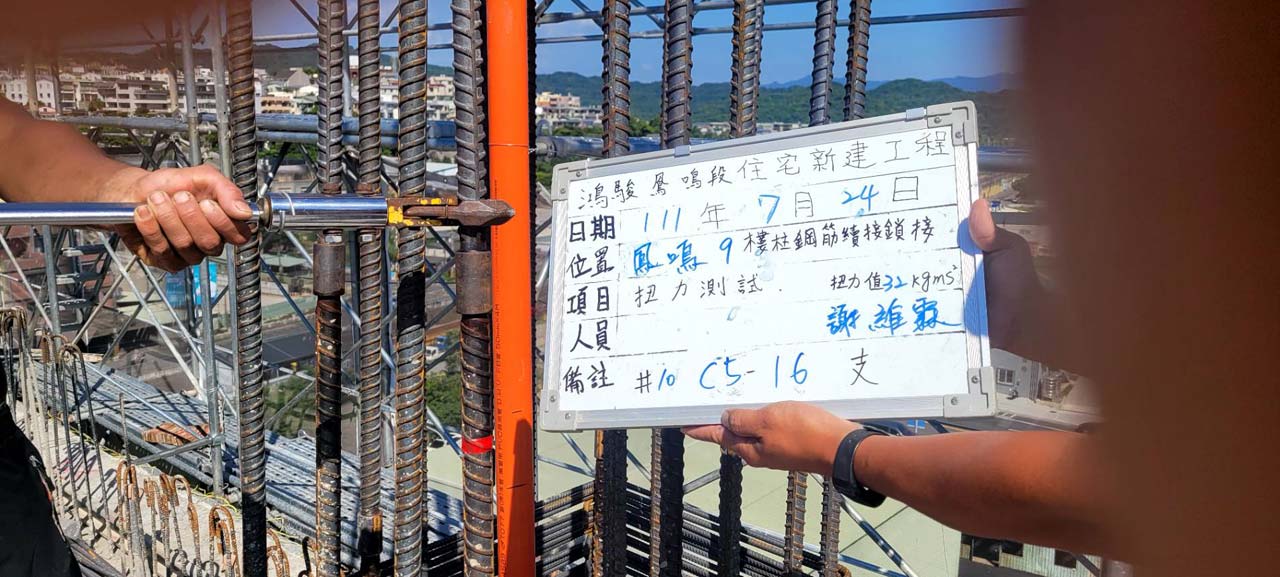 鴻駿鳳鳴段住宅新建工程
日期 111年7月24日
位置 鳳鳴9樓柱鋼筋續接鎖接
項目 扭力測試. 扭力值32kgms²
人員 謝維霖
備註 #10 C5-16支